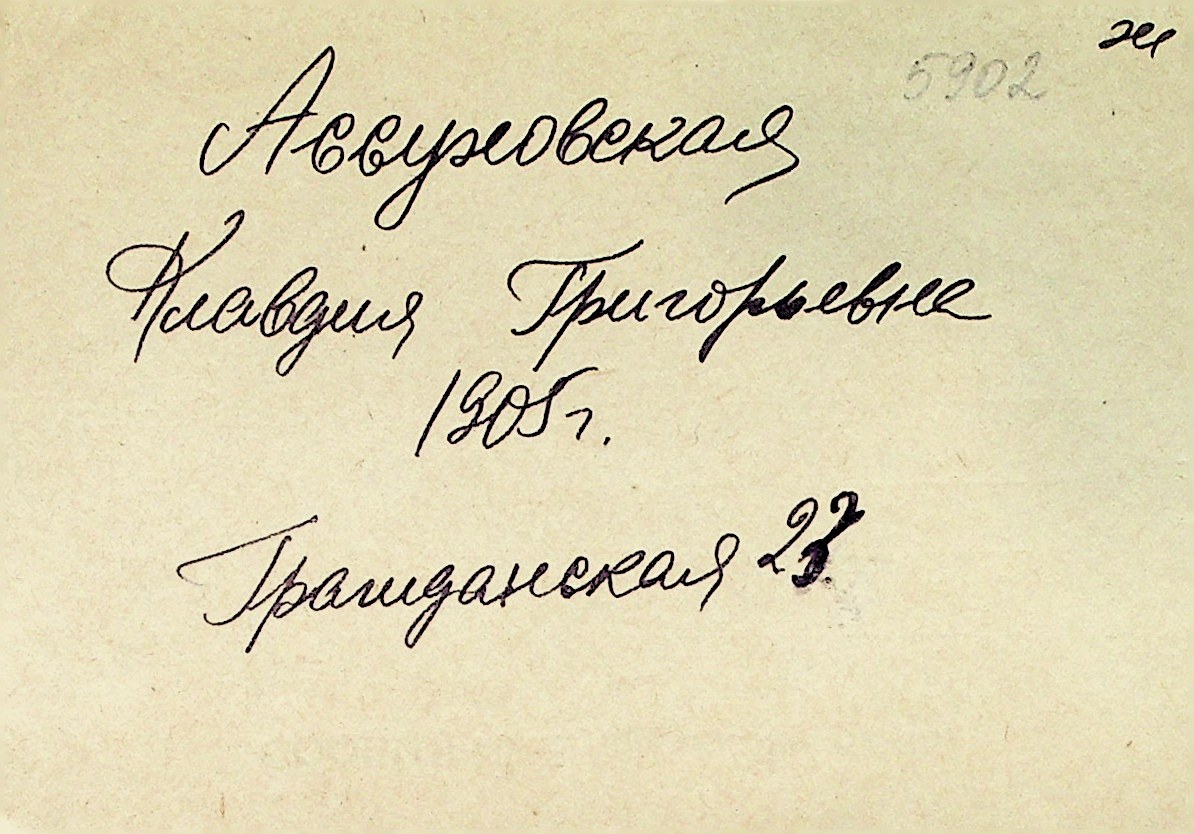 ж
5902
Ассуховская
Клавдия Григорьевна
1905г.
Гражданская